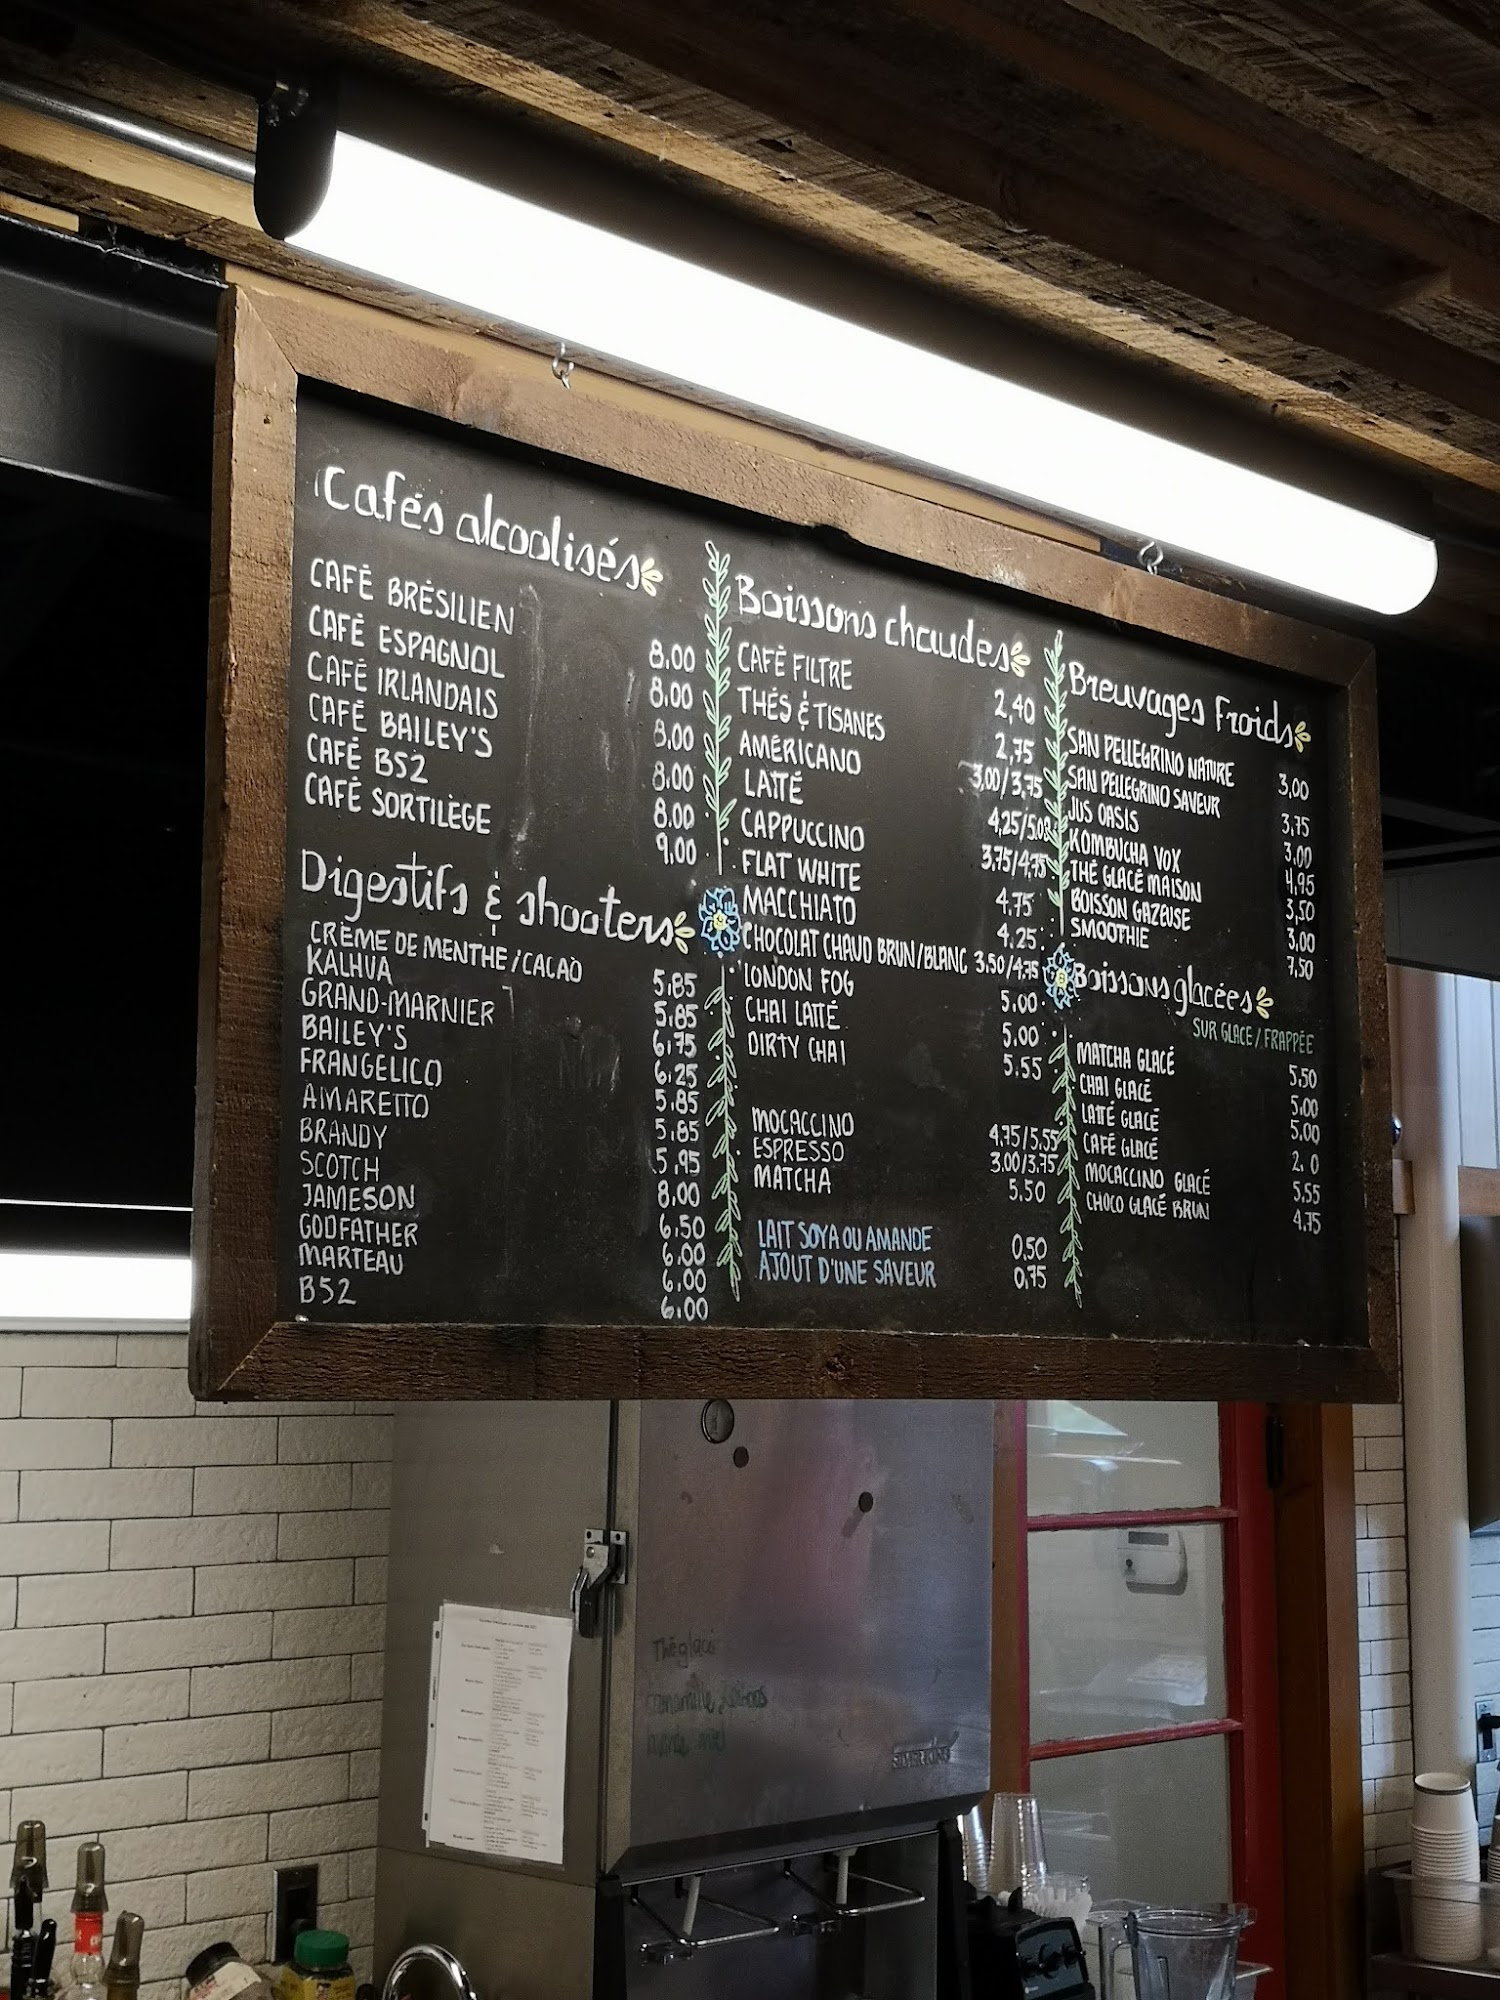 Cafés alcoolisés
CAFÉ BRÉSILIEN 8.00
CAFÉ ESPAGNOL 8.00
CAFÉ IRLANDAIS 8.00
CAFÉ BAILEY'S 8.00
CAFÉ B52 8.00
CAFÉ SORTILÈGE 9.00
Digestifs & shooters
CRÈME DE MENTHE/CACAO 5.85
KALHUA 5.85
GRAND-MARNIER 6.75
BAILEY'S 6.25
FRANGELICO 5.85
AMARETTO 5.85
BRANDY 5.95
SCOTCH 8.00
JAMESON 6.50
GODFATHER 6.00
MARTEAU 6.00
B52 6.00
Boissons chaudes
CAFÉ FILTRE 2,40
THÉS & TISANES 2,75
AMÉRICANO 3,00/3,75
LATTÉ 4,25/5.08
CAPPUCCINO 3,75/4,75
FLAT WHITE 4.75
MACCHIATO 4.25
CHOCOLAT CHAUD BRUN/BLANC 3.50/4,75
LONDON FOG 5.00
CHAI LATTÉ 5.00
DIRTY CHAI 5.55
MOCACCINO 4,75/5.55
ESPRESSO 3.00/3.75
MATCHA 5.50
LAIT SOYA OU AMANDE 0,50
AJOUT D'UNE SAVEUR 0,75
Breuvages froids
SAN PELLEGRINO NATURE 3,00
SAN PELLEGRINO SAVEUR 3,75
JUS OASIS 3.00
KOMBUCHA VOX 4,95
THÉ GLACÉ MAISON 3,50
BOISSON GAZEUSE 3,00
SMOOTHIE 7,50
Boissons glacées
SUR GLACE/FRAPPÉE
MATCHA GLACÉ 5.50
CHAI GLACÉ 5.00
LATTÉ GLACÉ 5.00
CAFÉ GLACÉ 2. 0
MOCACCINO GLACÉ 5.55
CHOCO GLACÉ BRUN 4.75